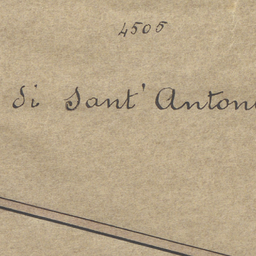 4505
di Sant' Anton